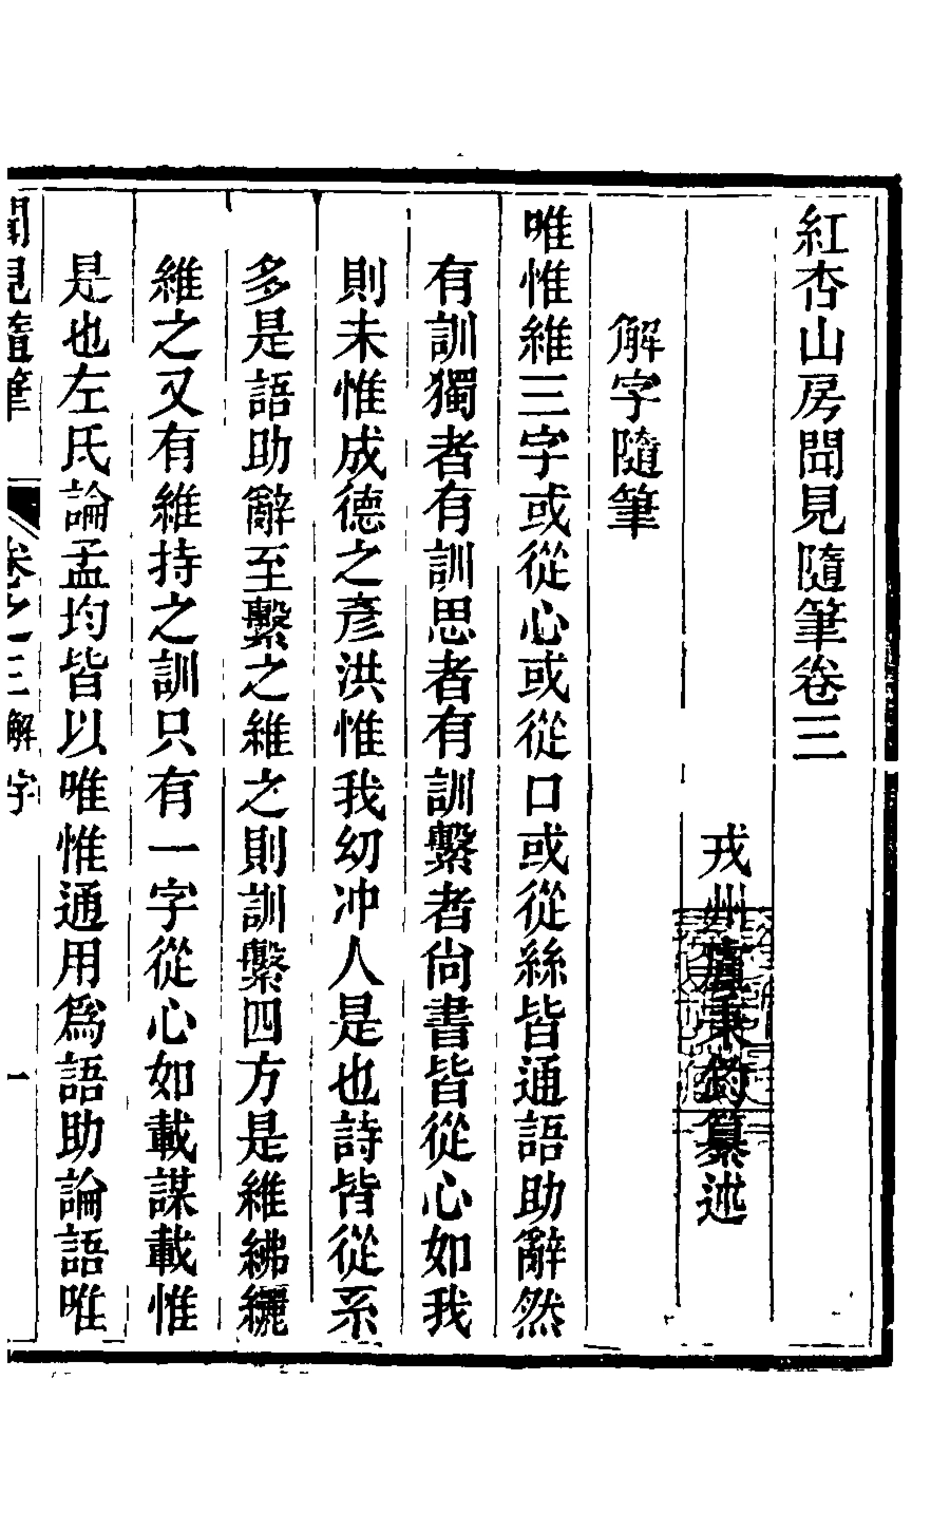 紅杏山房聞見隨筆卷三
戎州 秉鈞纂述
解字隨筆
唯惟維三字或從心或從口或從絲皆通語助辭然
有訓獨者有訓思者有訓繫者尚書皆從心如我
則未惟成德之彥洪惟我幼冲人是也詩皆從系
多是語助辭至繫之維之則訓繫四方是維紼纚
維之又有維持之訓只有一字從心如載謀載惟
是也左氏論孟均皆以唯惟通用爲語助論語唯
聞見隨筆 卷之三 解字 一